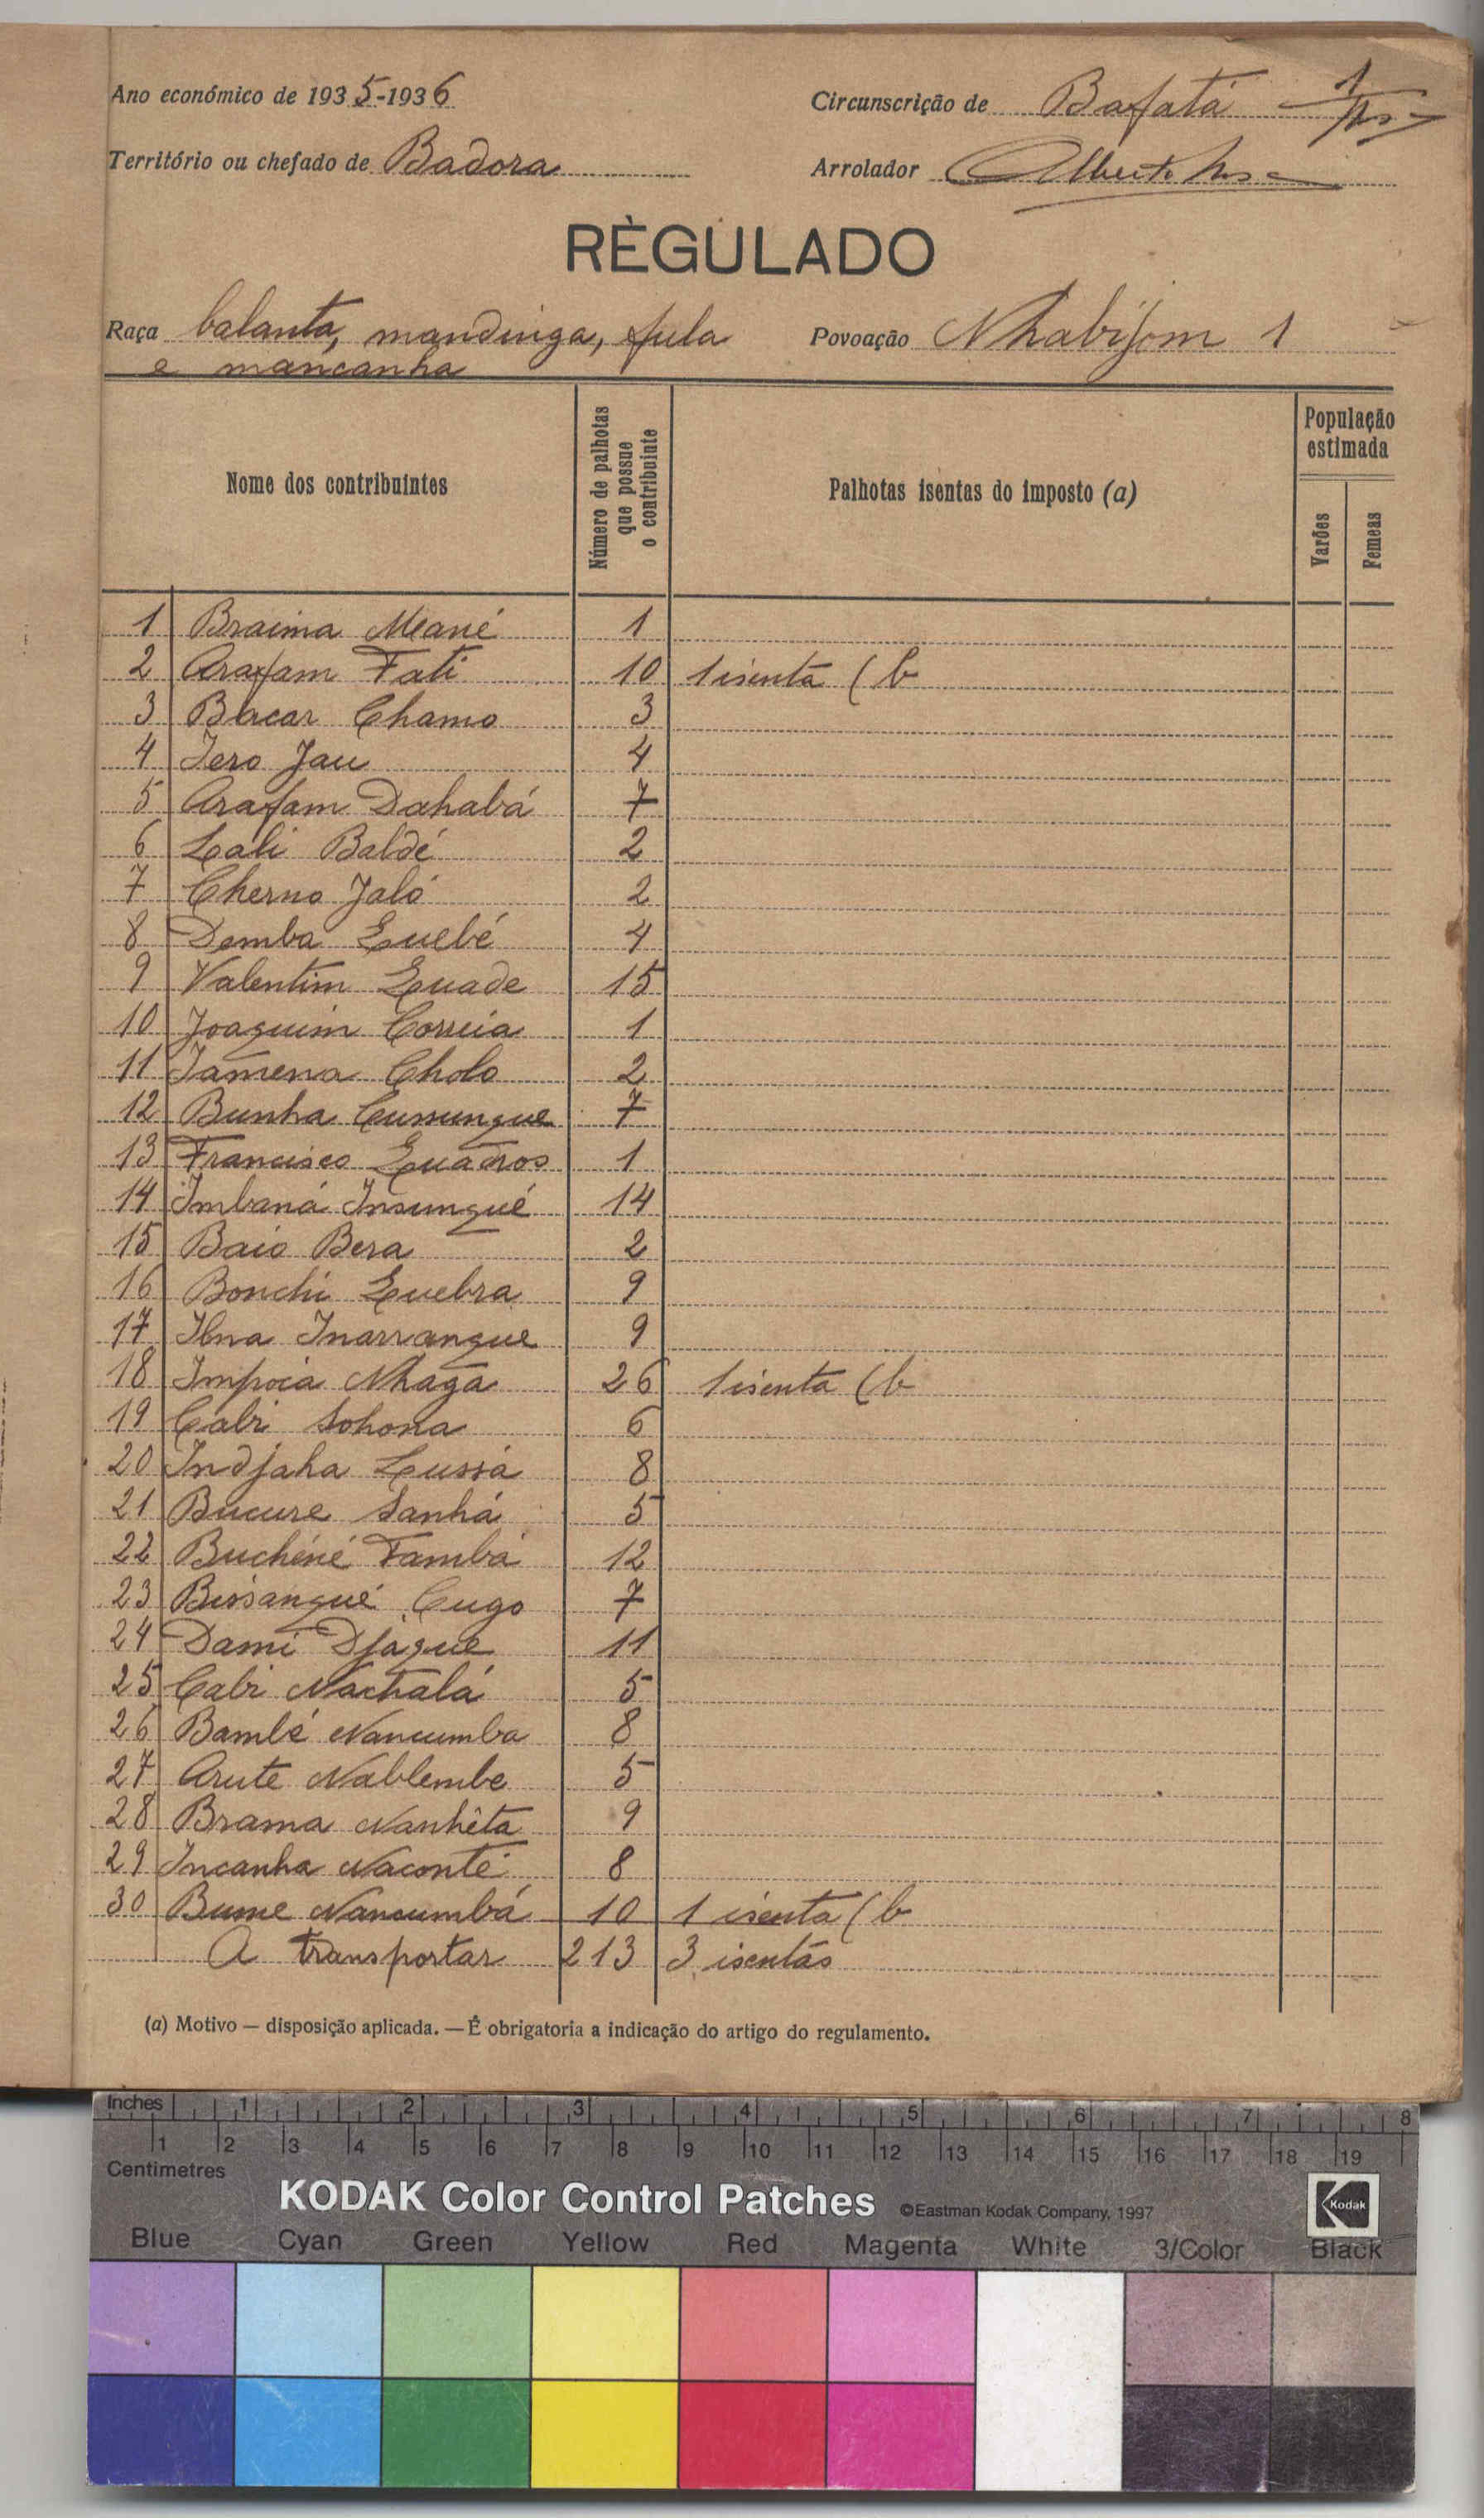 Ano económico de 1935-1936 Circunscrição de Bafatá 1
Território ou chefado de Badora Arrolador Alberto
RÈGULADO
Raça balanta, mandinga, fula Povoação Nhabijom 1
e mancanha
Nome dos contribuintes
Número de palhotas que possue o contribuinte
Palhotas isentas do imposto (a)
População estimada
Varões Femeas
1 Braima Mané 1
2 Arafam Fati 10 1 isenta (b
3 Bacar Chamo 3
4 Iero Jau 4
5 Arafam Dahabá 7
6 Lali Baldé 2
7 Cherno Jaló 2
8 Demba Quebé 4
9 Valentim Quade 15
10 Joaquim Correia 1
11 Tamena Cholo 2
12 Bunha Cussungue 7
13 Francisco Quadros 1
14 Imbaná Insungué 14
15 Baio Bera 2
16 Bonchi Quebra 9
17 Ilna Inarrangue 9
18 Impoia Nhaga 26 1 isenta (b
19 Cabi Sohona 6
20 Indjaha Cussá 8
21 Bucure Sanhá 5
22 Buchéné Tambá 12
23 Bissangué Cugo 7
24 Dami Djágue 11
25 Cabi Nachalá 5
26 Bambé Nancumba 8
27 Arute Nablembe 5
28 Brama Nanhêta 9
29 Incanha Naconté 8
30 Bume Nancumbá 10 1 isenta (b
A transportar 213 3 isentas
(a) Motivo — disposição aplicada. — É obrigatoria a indicação do artigo do regulamento.
Inches 1 2 3 4 5 6 7 8
1 2 3 4 5 6 7 8 9 10 11 12 13 14 15 16 17 18 19
Centimetres
KODAK Color Control Patches ©Eastman Kodak Company, 1997 Kodak
Blue Cyan Green Yellow Red Magenta White 3/Color Black